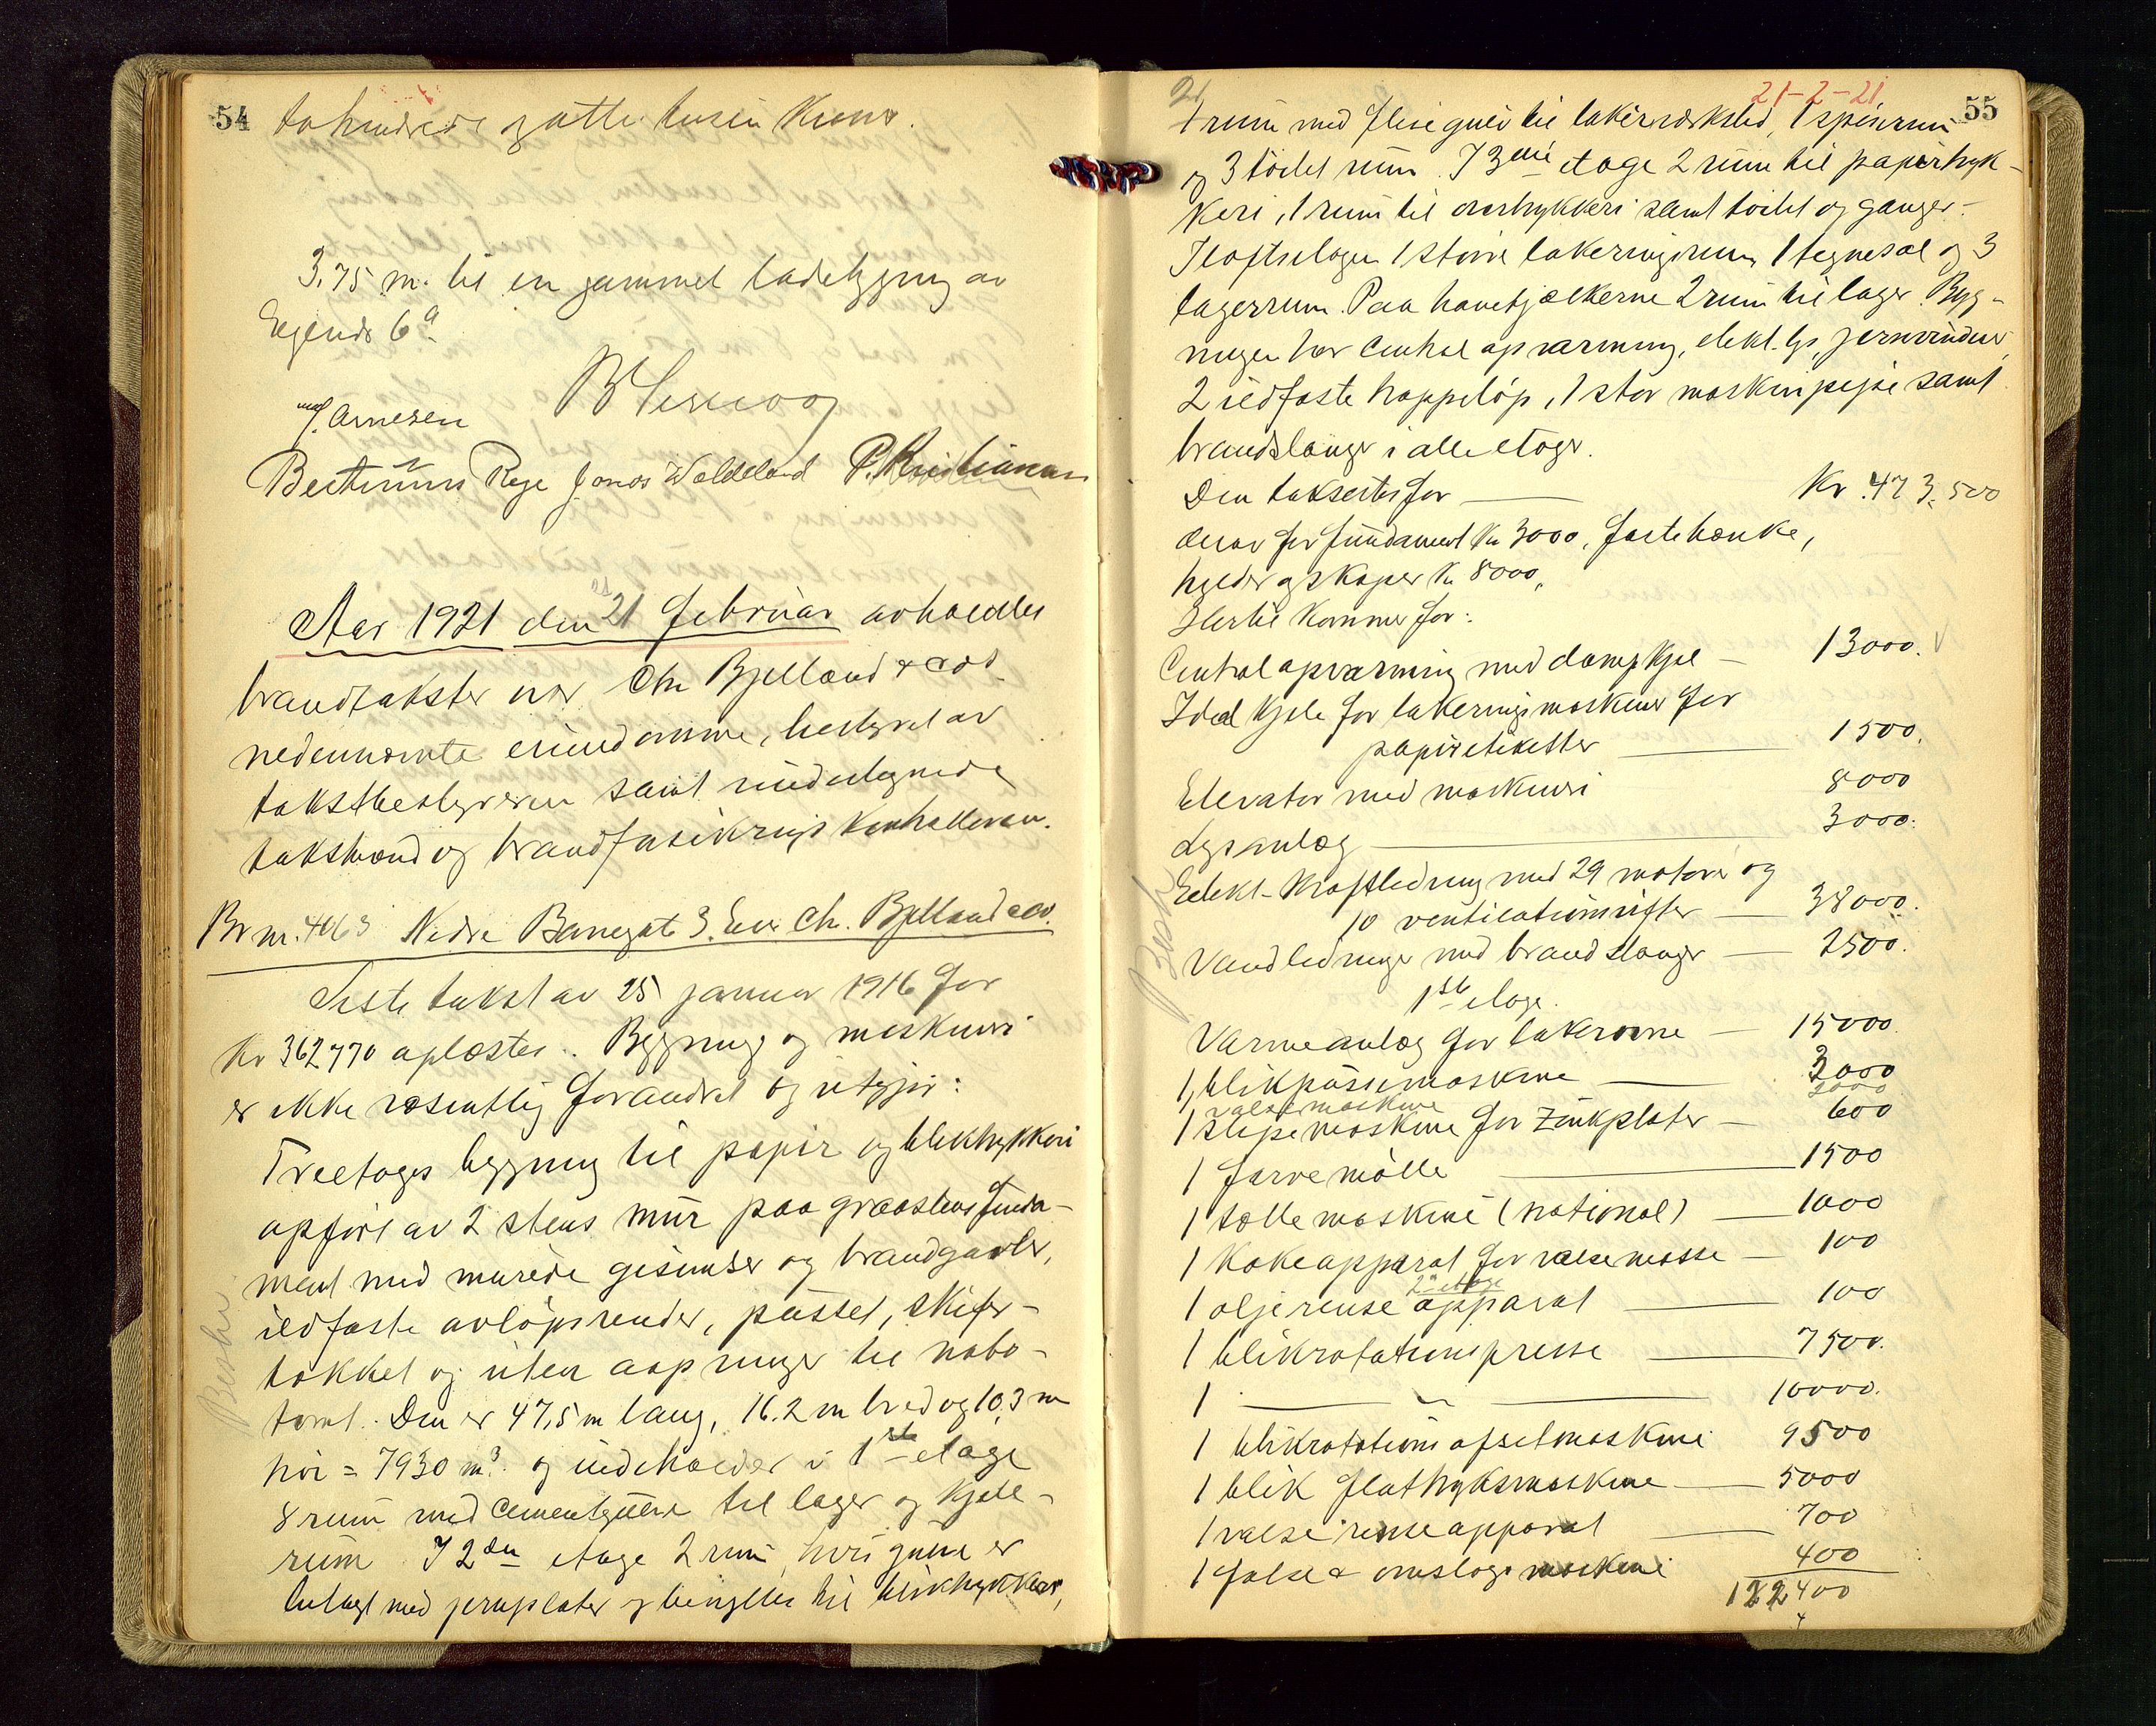 54
tohundrede og otte tusin Kroner.
3,75 m. til en gammel ladebygning av
Eiends 6a
M. Arnesen
Bertinius Rege Jonas Wøldeland P. Kristiansen
Aar 1921 den 21 februar avholdtes
brandtakster over Chr Bjelland & Co's
nedennævnte eiendomme, bestyret av
takstbestyreren samt undertegnede
takstmænd og brandforsikrings kontrolløren.
Br nr. 4063 Nedre Banegate 3. Eier Chr. Bjelland & Co.
Siste takst av 25 januar 1916 for
Kr 362770 oplæstes. Bygning og maskineri
er ikke væsentlig forandret og utgjør:
Treetages bygning til papir og bliktrykkeri
opført av 2 stens mur paa graastens funda-
ment med murede gesimser og brandgavler,
ildfaste avløpsrender, pusset, skifer-
tækket og uten aapninger til nabo-
tomt. Den er 47,5 m lang, 16.2 m bred og 10,3 m
høi = 7930 m3. og indeholder i 1ste etage
8 rum med cementgulve til lager og kjele-
rum I 2den etage 2 rum, hvis gulve er
belagt med jernplater og benyttes til bliktrykkeri,
21-2-21
55
1 rum med flisegulv til lakerværksted, 1 spiserum
og 3 toilet rum. I 3die etage 2 rum til papirtryk-
keri, 1 rum til omtrykkeri samt toilet og ganger.
I loftsetagen 1 større lakeringsrum, 1 tegnesal og 3
lagerrum. Paa hanebjælkerne 2 rum til lager. Byg-
ningen har central opvarming, elekt. lys, jernvinduer,
2 ildfaste trappeløp, 1 stor maskinpipe samt
brandslanger i alle etager.
Den takseres for Kr. 473,500
derav for fundament Kr 3000, faste bænke,
hylder og skaper Kr 8000,
Hertil kommer for:
Centralopvarming med dampkjel 13000.
Ideal kjele for lakeringsmaskiner for
papiretiketter 1500.
Elevator med maskineri 8000
Lysanlæg 3000.
Elekt. Kraftledning med 29 motorer og
10 ventilationsvifter 38000.
Vandledninger med brandslanger 2500.
1ste etage.
Varmeanlæg for lakerovne 15000.
1 blikpudsemaskine 3000
valsemaskine 2000
1 slipemaskine for zinkplater 600
1 farvemølle 1500
1 tællemaskine (national) 1000
1 kokeapparat for valsemasse 100
2den etage
1 oljerense apparat 100
1 blikrotationspresse 7500.
1 " 10000.
1 blikrotations ofsetmaskine 9500
1 blik flattryksmaskine 5000
1 valse renseapparat 700
1 false & omslags maskine 400
122400